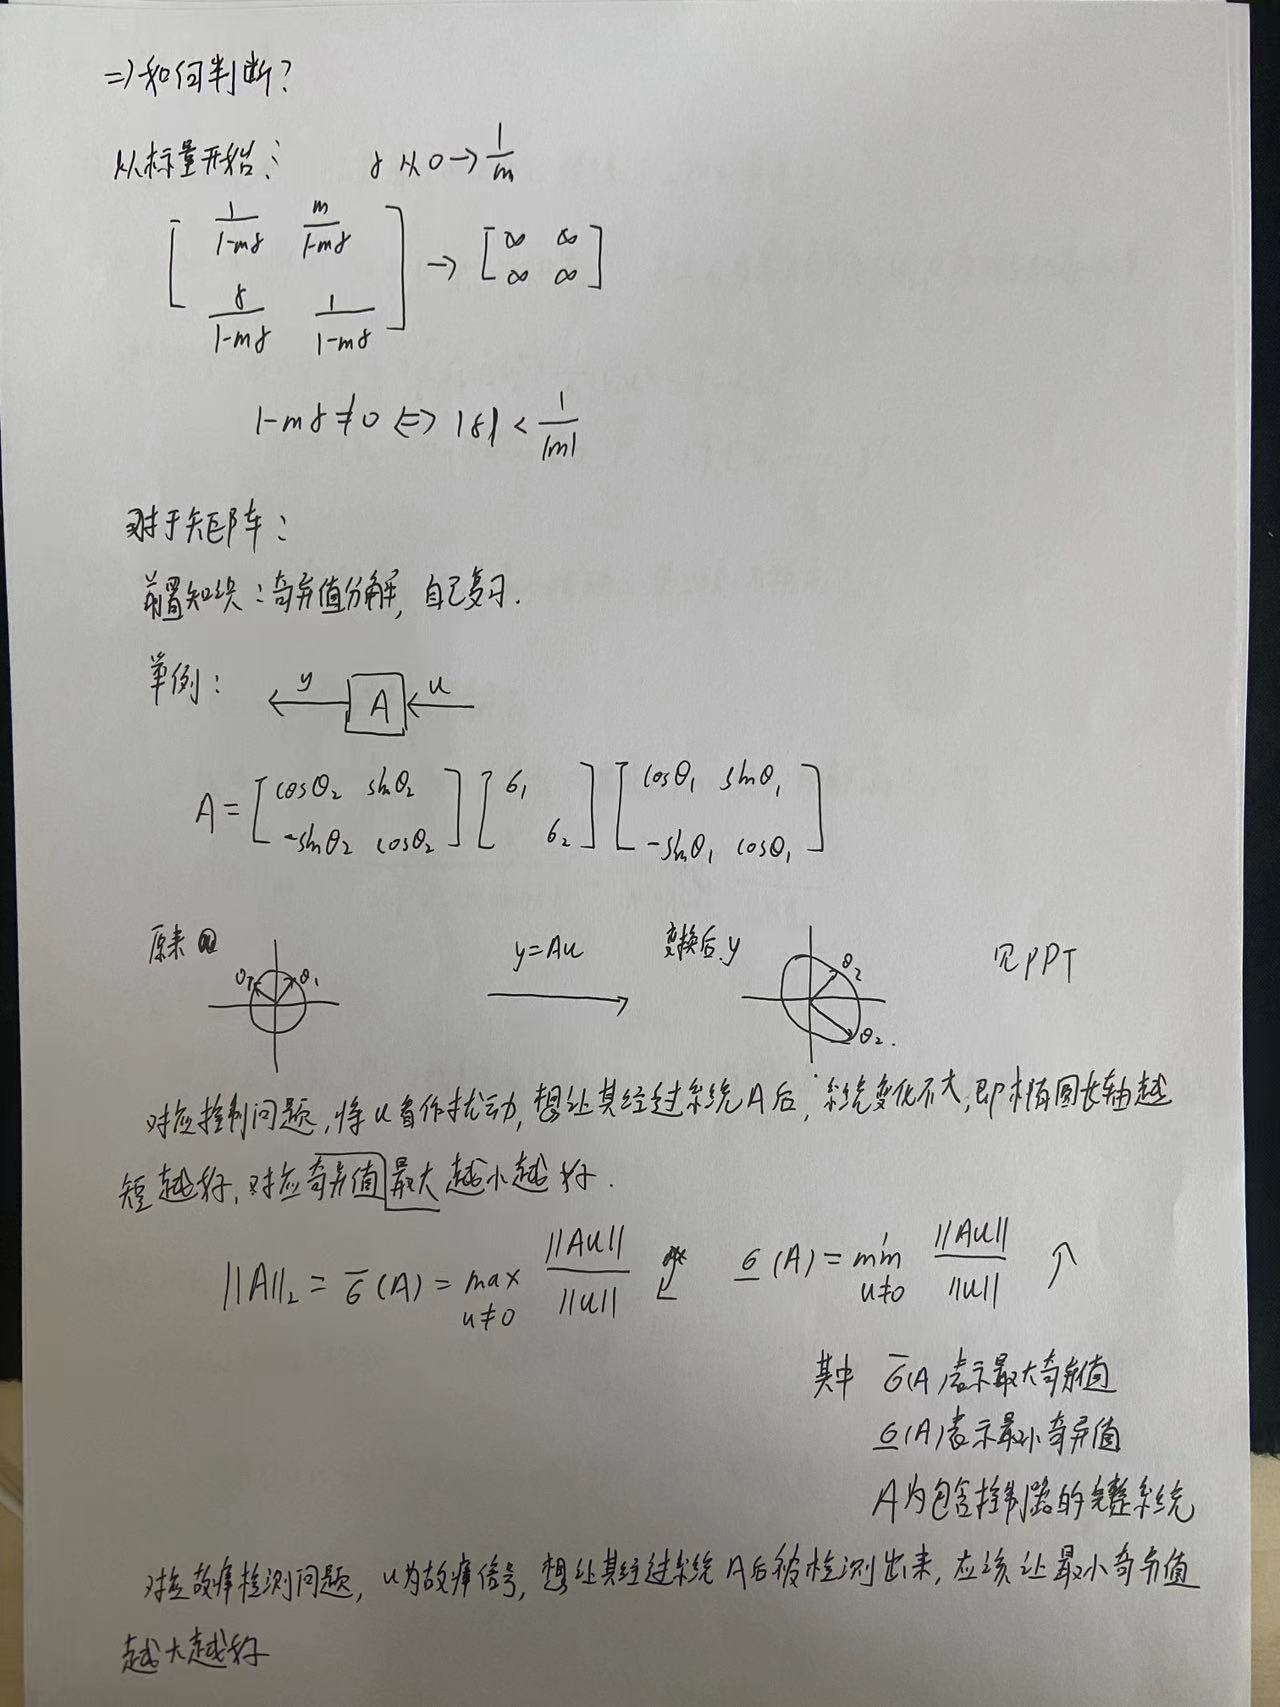 => 如何判断?
从标量开始: δ 从 0 → 1/m
[ 1/(1-mδ) m/(1-mδ) ; δ/(1-mδ) 1/(1-mδ) ] → [ ∞ ∞ ; ∞ ∞ ]
1-mδ ≠ 0 <=> |δ| < 1/|m|
对于矩阵:
前置知识: 奇异值分解, 自己复习.
举例: y ← A ← u
A = [ cosθ₂ sinθ₂ ; -sinθ₂ cosθ₂ ] [ σ₁ ; σ₂ ] [ cosθ₁ sinθ₁ ; -sinθ₁ cosθ₁ ]
原来 y=Au 变换后 y 见PPT
θ₁ θ₁ θ₂ θ₂.
对应控制问题, 将u看作扰动, 想让其经过系统A后, 系统变化不大, 即椭圆长轴越
短越好, 对应奇异值最大越小越好.
||A||₂ = σ̄(A) = max u≠0 ||Au||/||u|| ↙ σ̲(A) = min u≠0 ||Au||/||u|| ↗
其中 σ̄(A)表示最大奇异值
σ̲(A)表示最小奇异值
A为包含控制器的完整系统
对应故障检测问题, u为故障信号, 想让其经过系统A后被检测出来, 应该让最小奇异值
越大越好